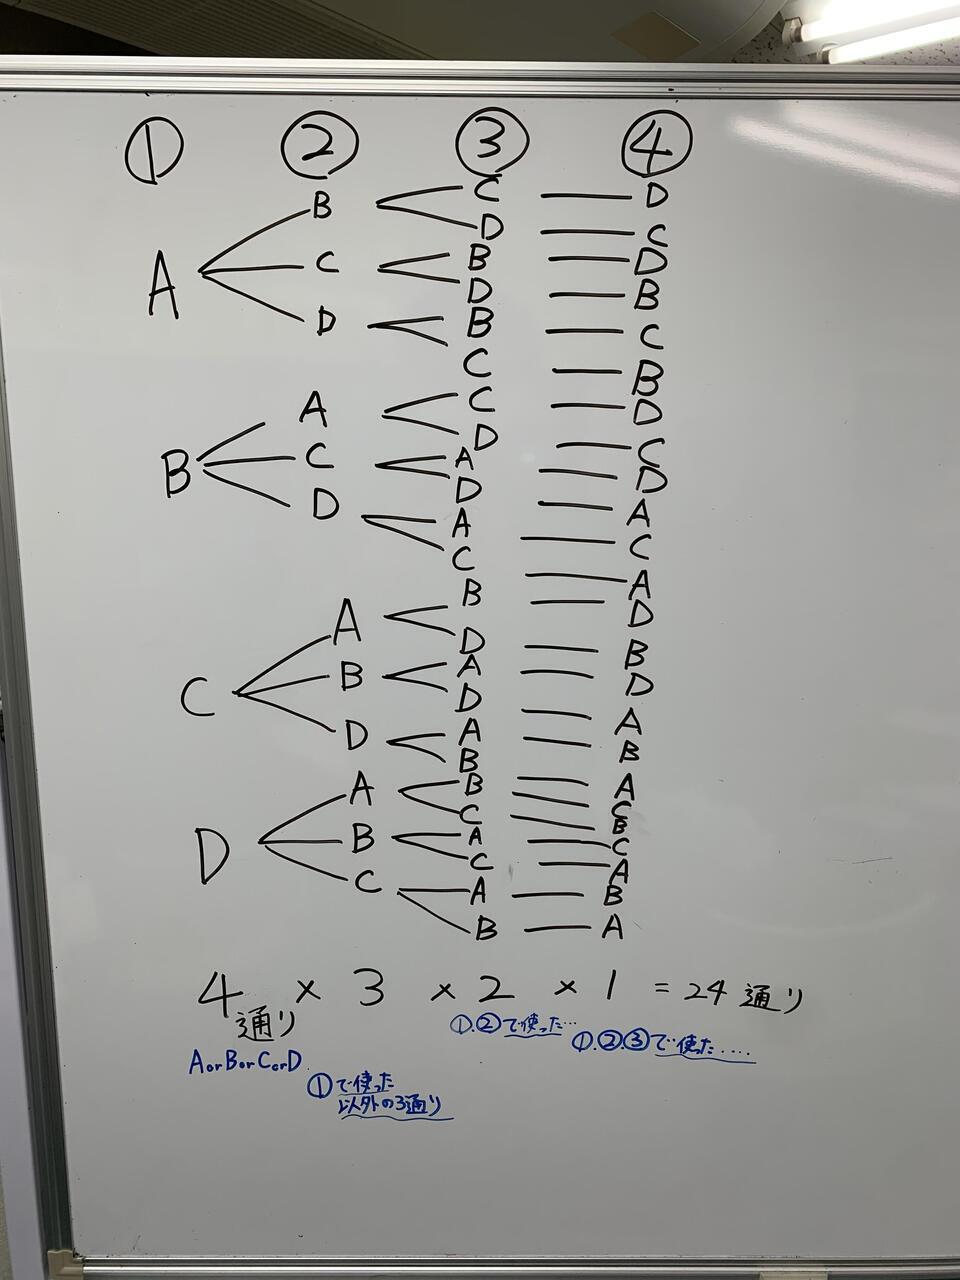 ① ② ③ ④
A B C D
D C
C B D
D B
D B C
C B
B A C D
D C
C A D
D A
D A C
C A
C A B D
D B
B A D
D A
D A B
B A
D A B C
C B
B A C
C A
C A B
B A
4 × 3 × 2 × 1 = 24 通り
通り
AorBorCorD
①で使った
以外の3通り
①.②で使った…
①.②.③で使った....